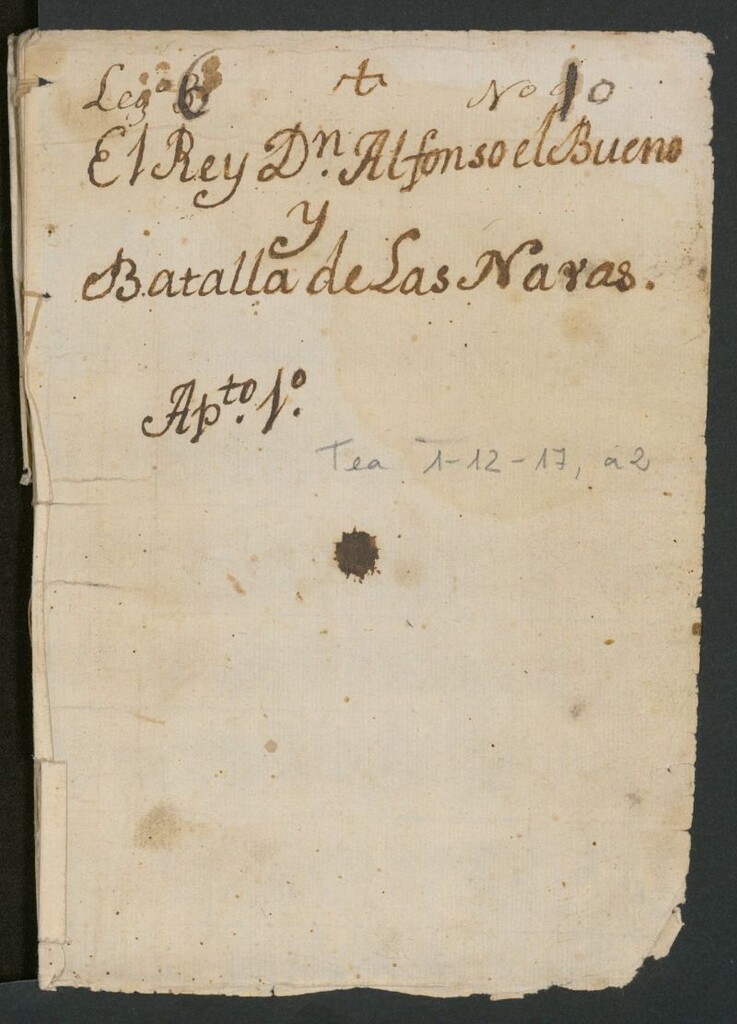 Leg.º 6 t Nº 10
El Rey Dn. Alfonso el Bueno
y
Batalla de Las Navas.
Apto. 1º.
Tea 1-12-17, a2